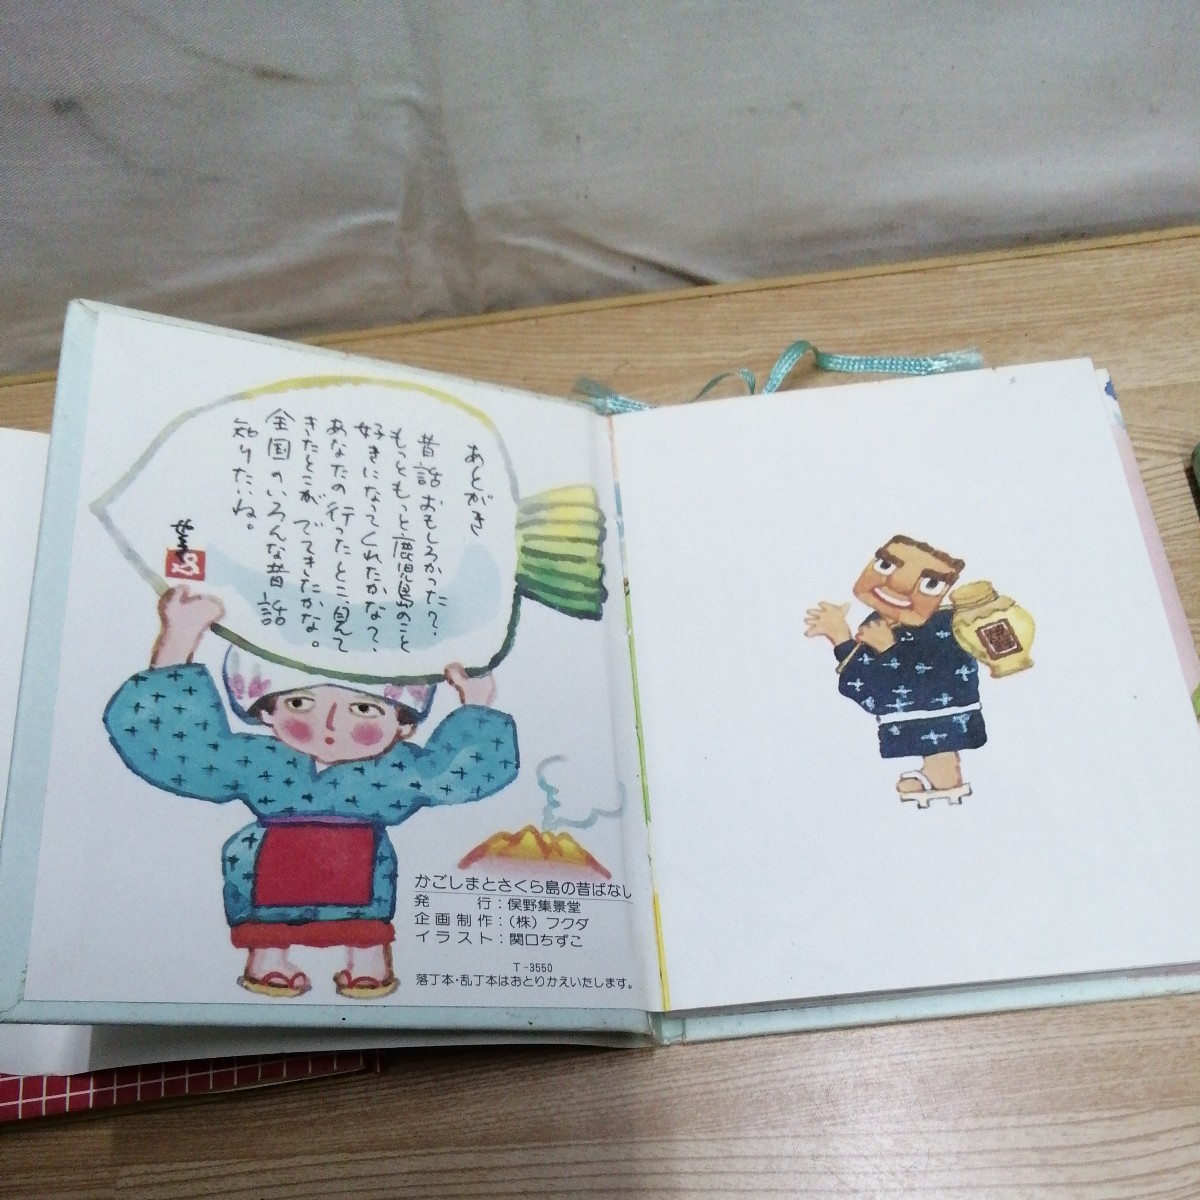 あとがき
昔話おもしろかった？、
もっともっと鹿児島のこと
好きになってくれたかな？、
あなたの行ったとこ、見て
きたとこが、でてきたかな。
全国のいろんな昔話
知りたいね。
かごしまとさくら島の昔ばなし
発　行：俣野集景堂
企画制作：（株）フクダ
イラスト：関口ちずこ
T-3550
落丁本・乱丁本はおとりかえいたします。